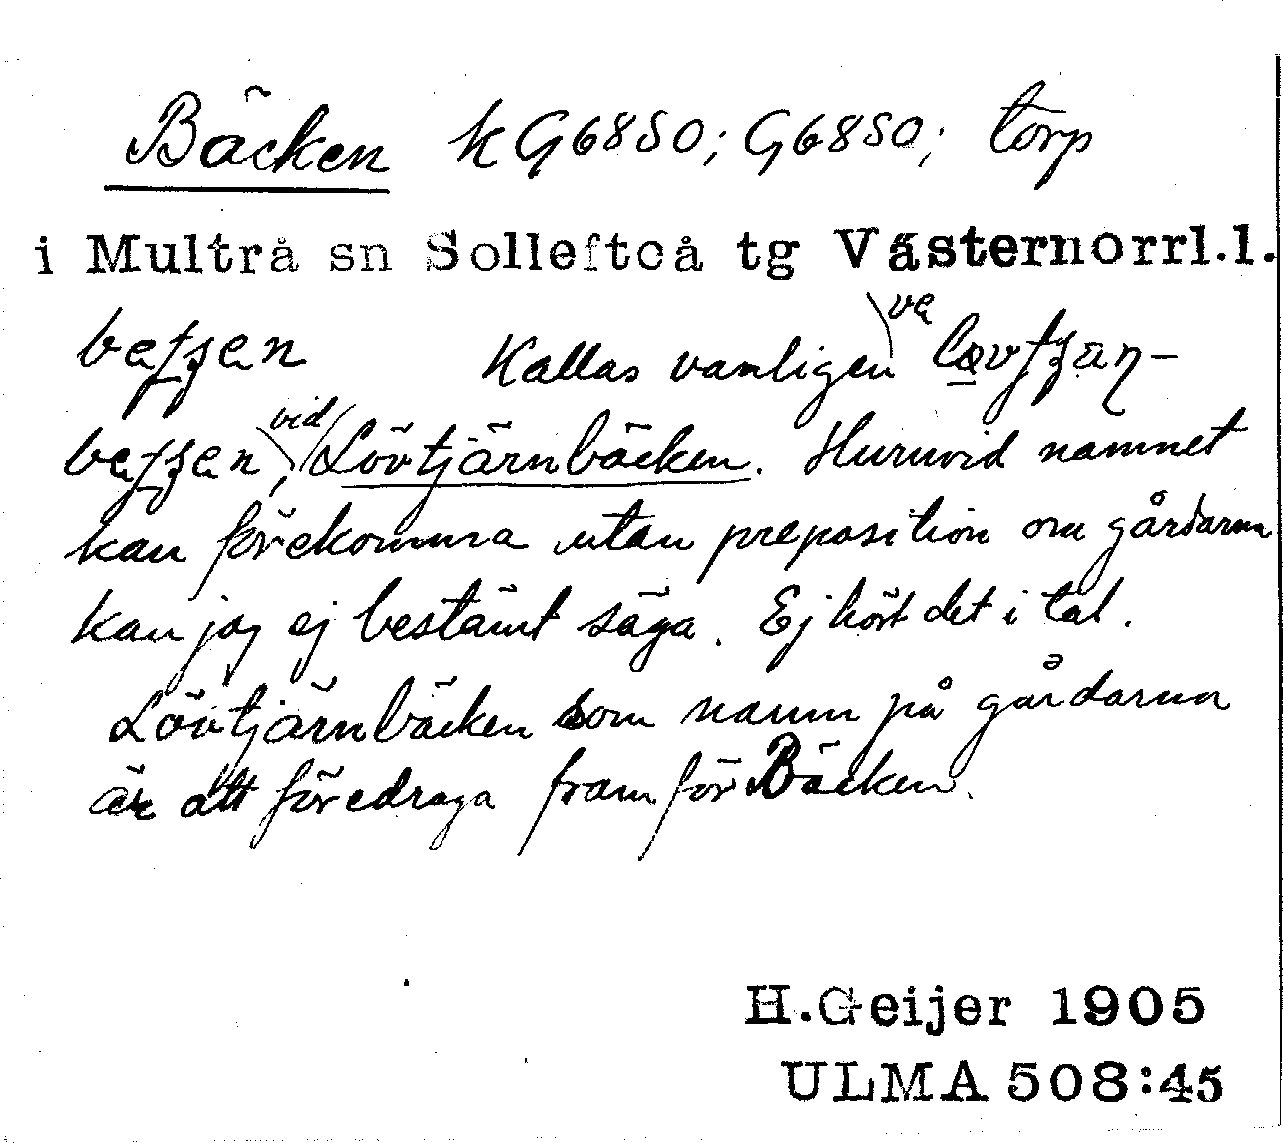 Bäcken k G6850; G6850; torp
i Multrå sn Sollefteå tg Västernorrl.l.
Kallas vanligen va
vid Lövtjärnbäcken. Huruvid namnet
kan förekomma utan preposition om gårdarna
kan jag ej bestämt säga. Ej hört det i tal.
Lövtjärnbäcken som namn på gårdarna
är att föredraga framför Bäcken.
H.Geijer 1905
ULMA 508:45